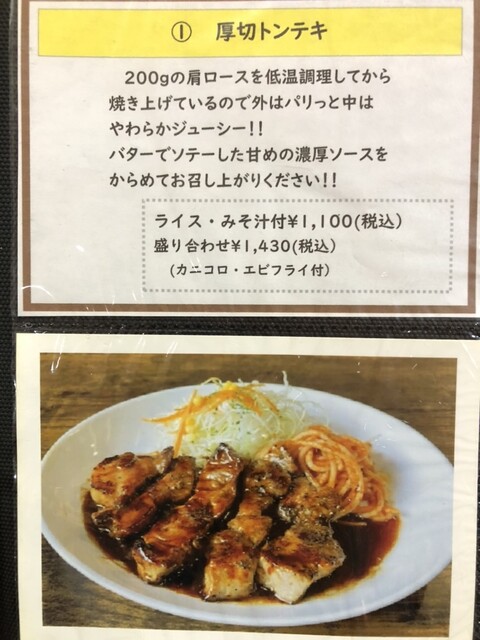 ① 厚切トンテキ
200gの肩ロースを低温調理してから
焼き上げているので外はパリっと中は
やわらかジューシー!!
バターでソテーした甘めの濃厚ソースを
からめてお召し上がりください!!
ライス・みそ汁付¥1,100(税込)
盛り合わせ¥1,430(税込)
(カニコロ・エビフライ付)